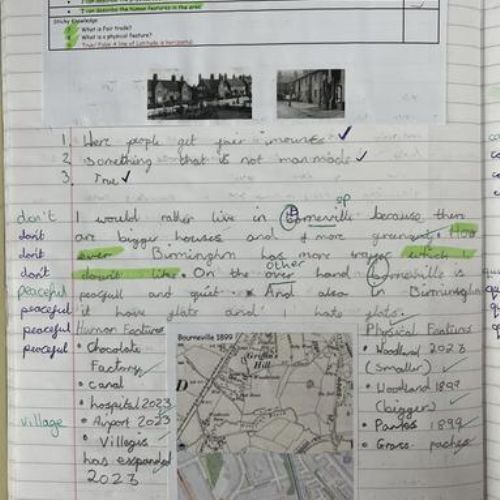 I can describe the human features in the area
Sticky Knowledge
What is Fair trade?
What is a physical feature?
True/ False A line of Latitude is horizontal
1. Here people get fair amounts
2 something that is not man made
3. True
don't I would rather live in Borneville because there
don't are bigger houses and more greenery. How
don't ever Birmingham has more which I
don't doesn't like. On the over other hand borneville is
peaceful peacfull and quiet. And also In Birmingham
peaceful it have flats and I hate flats.
peaceful Human Features Physical Features
peaceful • Chocolate Factory
• canal
• hospital 2023
• Airport 2023
village • Villages has expanded 2023
Bourneville 1899
Griffin's Hill
• Woodland 2023 (Smaller)
• Woodland 1899 (bigger)
• Parks 1899
• Grass